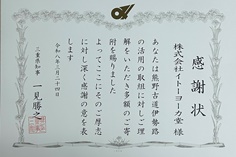 感謝状
株式会社イトーヨーカ堂 様
あなたは熊野古道伊勢路
の活用の取組に対しご理
解をいただき多額のご寄
附を賜りました
よってここにそのご厚志
に対し深く感謝の意を表
します
令和六年三月二十四日
三重県知事 一見勝之